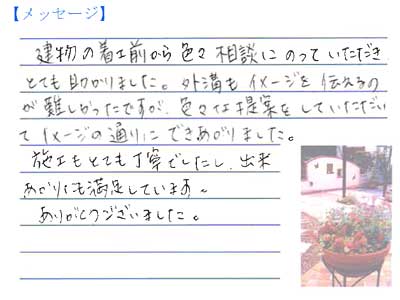 【メッセージ】
建物の着工前から色々相談にのっていただき
とても助かりました。外溝もイメージを伝えるの
が難しかったですが、色々な提案をしていただい
てイメージの通りにできあがりました。
施工もとても丁寧でしたし、出来
あがりにも満足しています。
ありがとうございました。